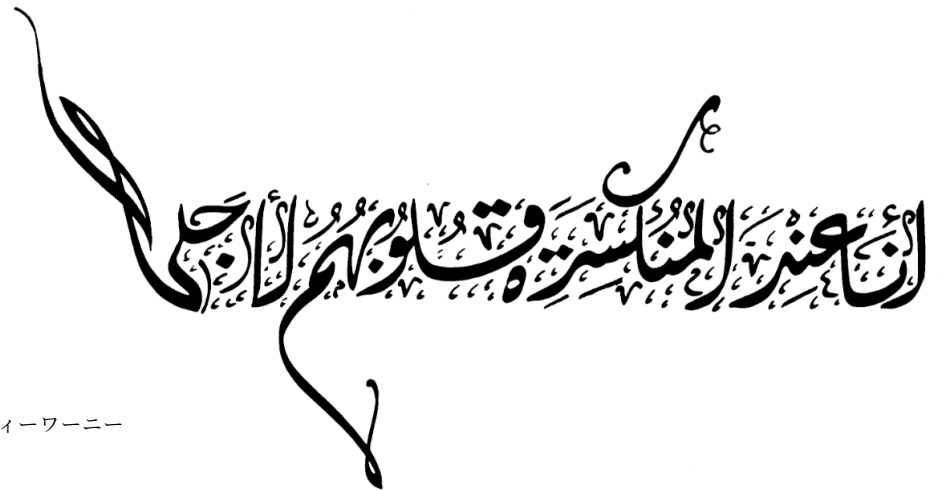 أَنَا عِنْدَ الْمُنْكَسِرَةِ قُلُوبُهُمْ لِأَجْلِي
ィーワーニー